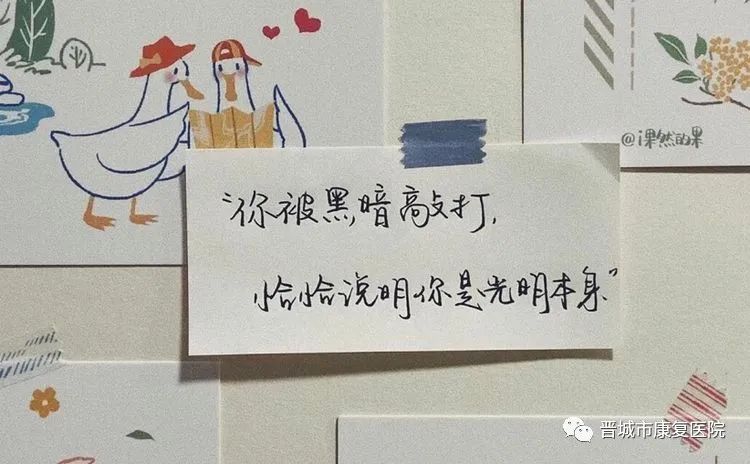 @i果然的果
“你被黑暗敲打，
恰恰说明你是光明本身”
晋城市康复医院